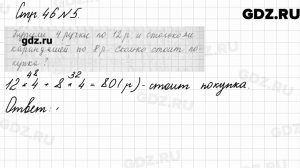 GDZ.RU
Стр. 46 №5.
GDZ.RU
Купили 4 ручки по 12 р и столько же
карандашей по 8 р. Сколько стоит по-
купка?
48 32
12 * 4 + 8 * 4 = 80 (р) - стоит покупка.
Ответ:
GDZ.RU